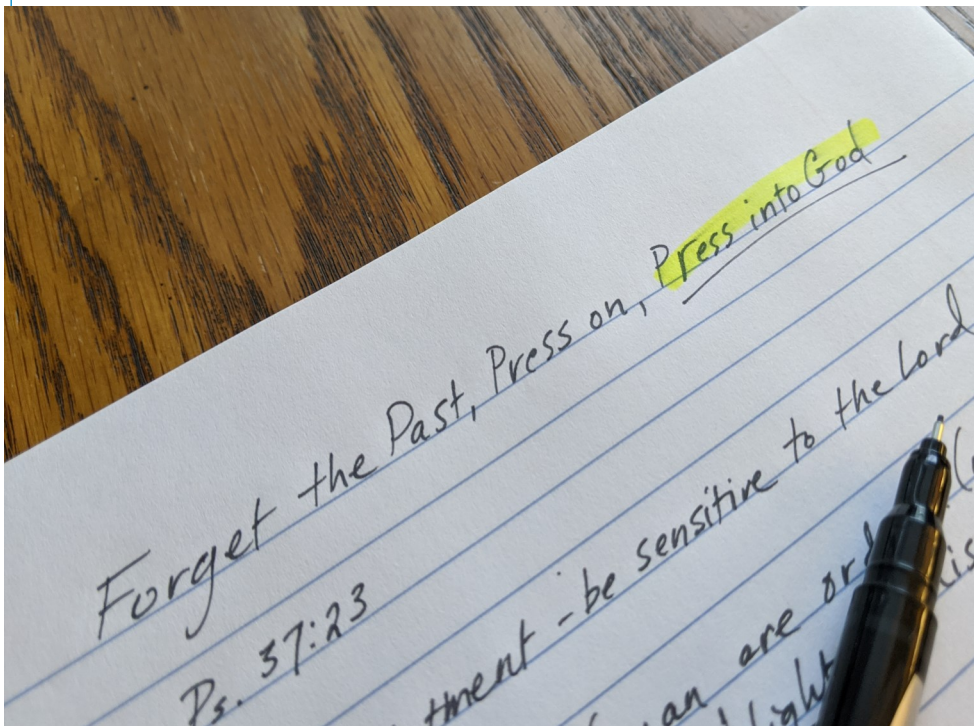 Forget the Past, Press on, Press into God
Ps. 37:23
- be sensitive to the Lord
are